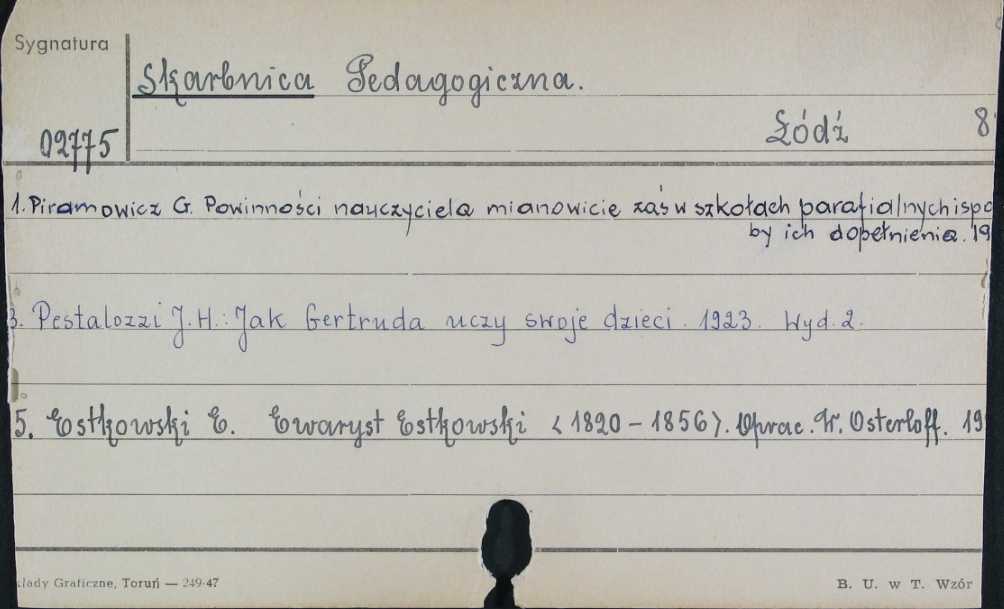 Sygnatura
Skarbnica Pedagogiczna.
02775
Łódź 8
1. Piramowicz G. Powinności nauczyciela mianowicie zaś w szkołach parafialnych i spo
by ich dopełnienia. 19
3. Pestalozzi J. H.: Jak Gertruda uczy swoje dzieci. 1923. Wyd. 2.
5. Estkowski E. Ewaryst Estkowski <1820 - 1856>. Oprac. W. Osterloff. 19
kłady Graficzne, Toruń — 249-47
B. U. w T. Wzór